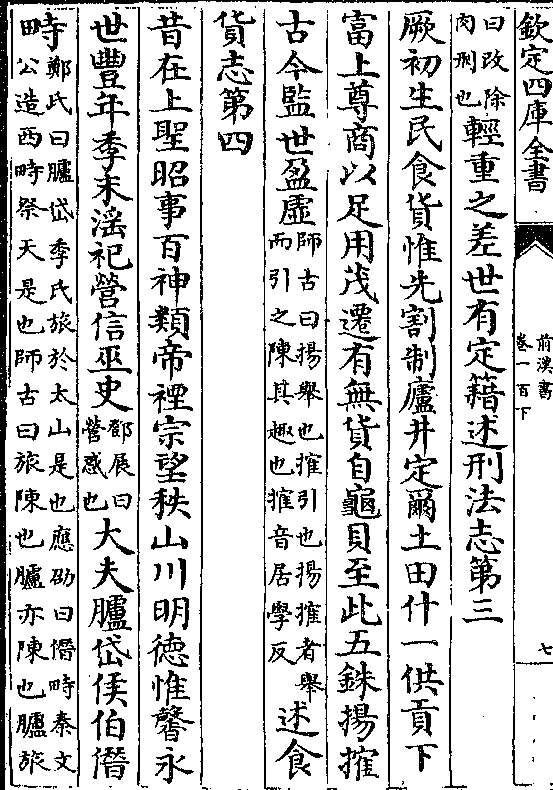 欽定四庫全書
前漢書
卷一百下
七
曰改除
肉刑也
輕重之差世有定籍述刑法志第三
厥初生民食貨惟先割制廬井定爾土田什一供貢下
富上尊商以足用茂遷有無貨自龜貝至此五銖揚搉
古今監世盈虛
師古曰揚舉也搉引也揚搉者舉
而引之陳其趣也搉音居學反
述食
貨志第四
昔在上聖昭事百神類帝禋宗望秩山川明德惟馨永
世豐年季末滛祀營信巫史
鄧展曰
營惑也
大夫臚岱侯伯僭
畤
鄭氏曰臚岱季氏旅於太山是也應劭曰僭畤秦文
公造西畤祭天是也師古曰旅陳也臚亦陳也臚旅